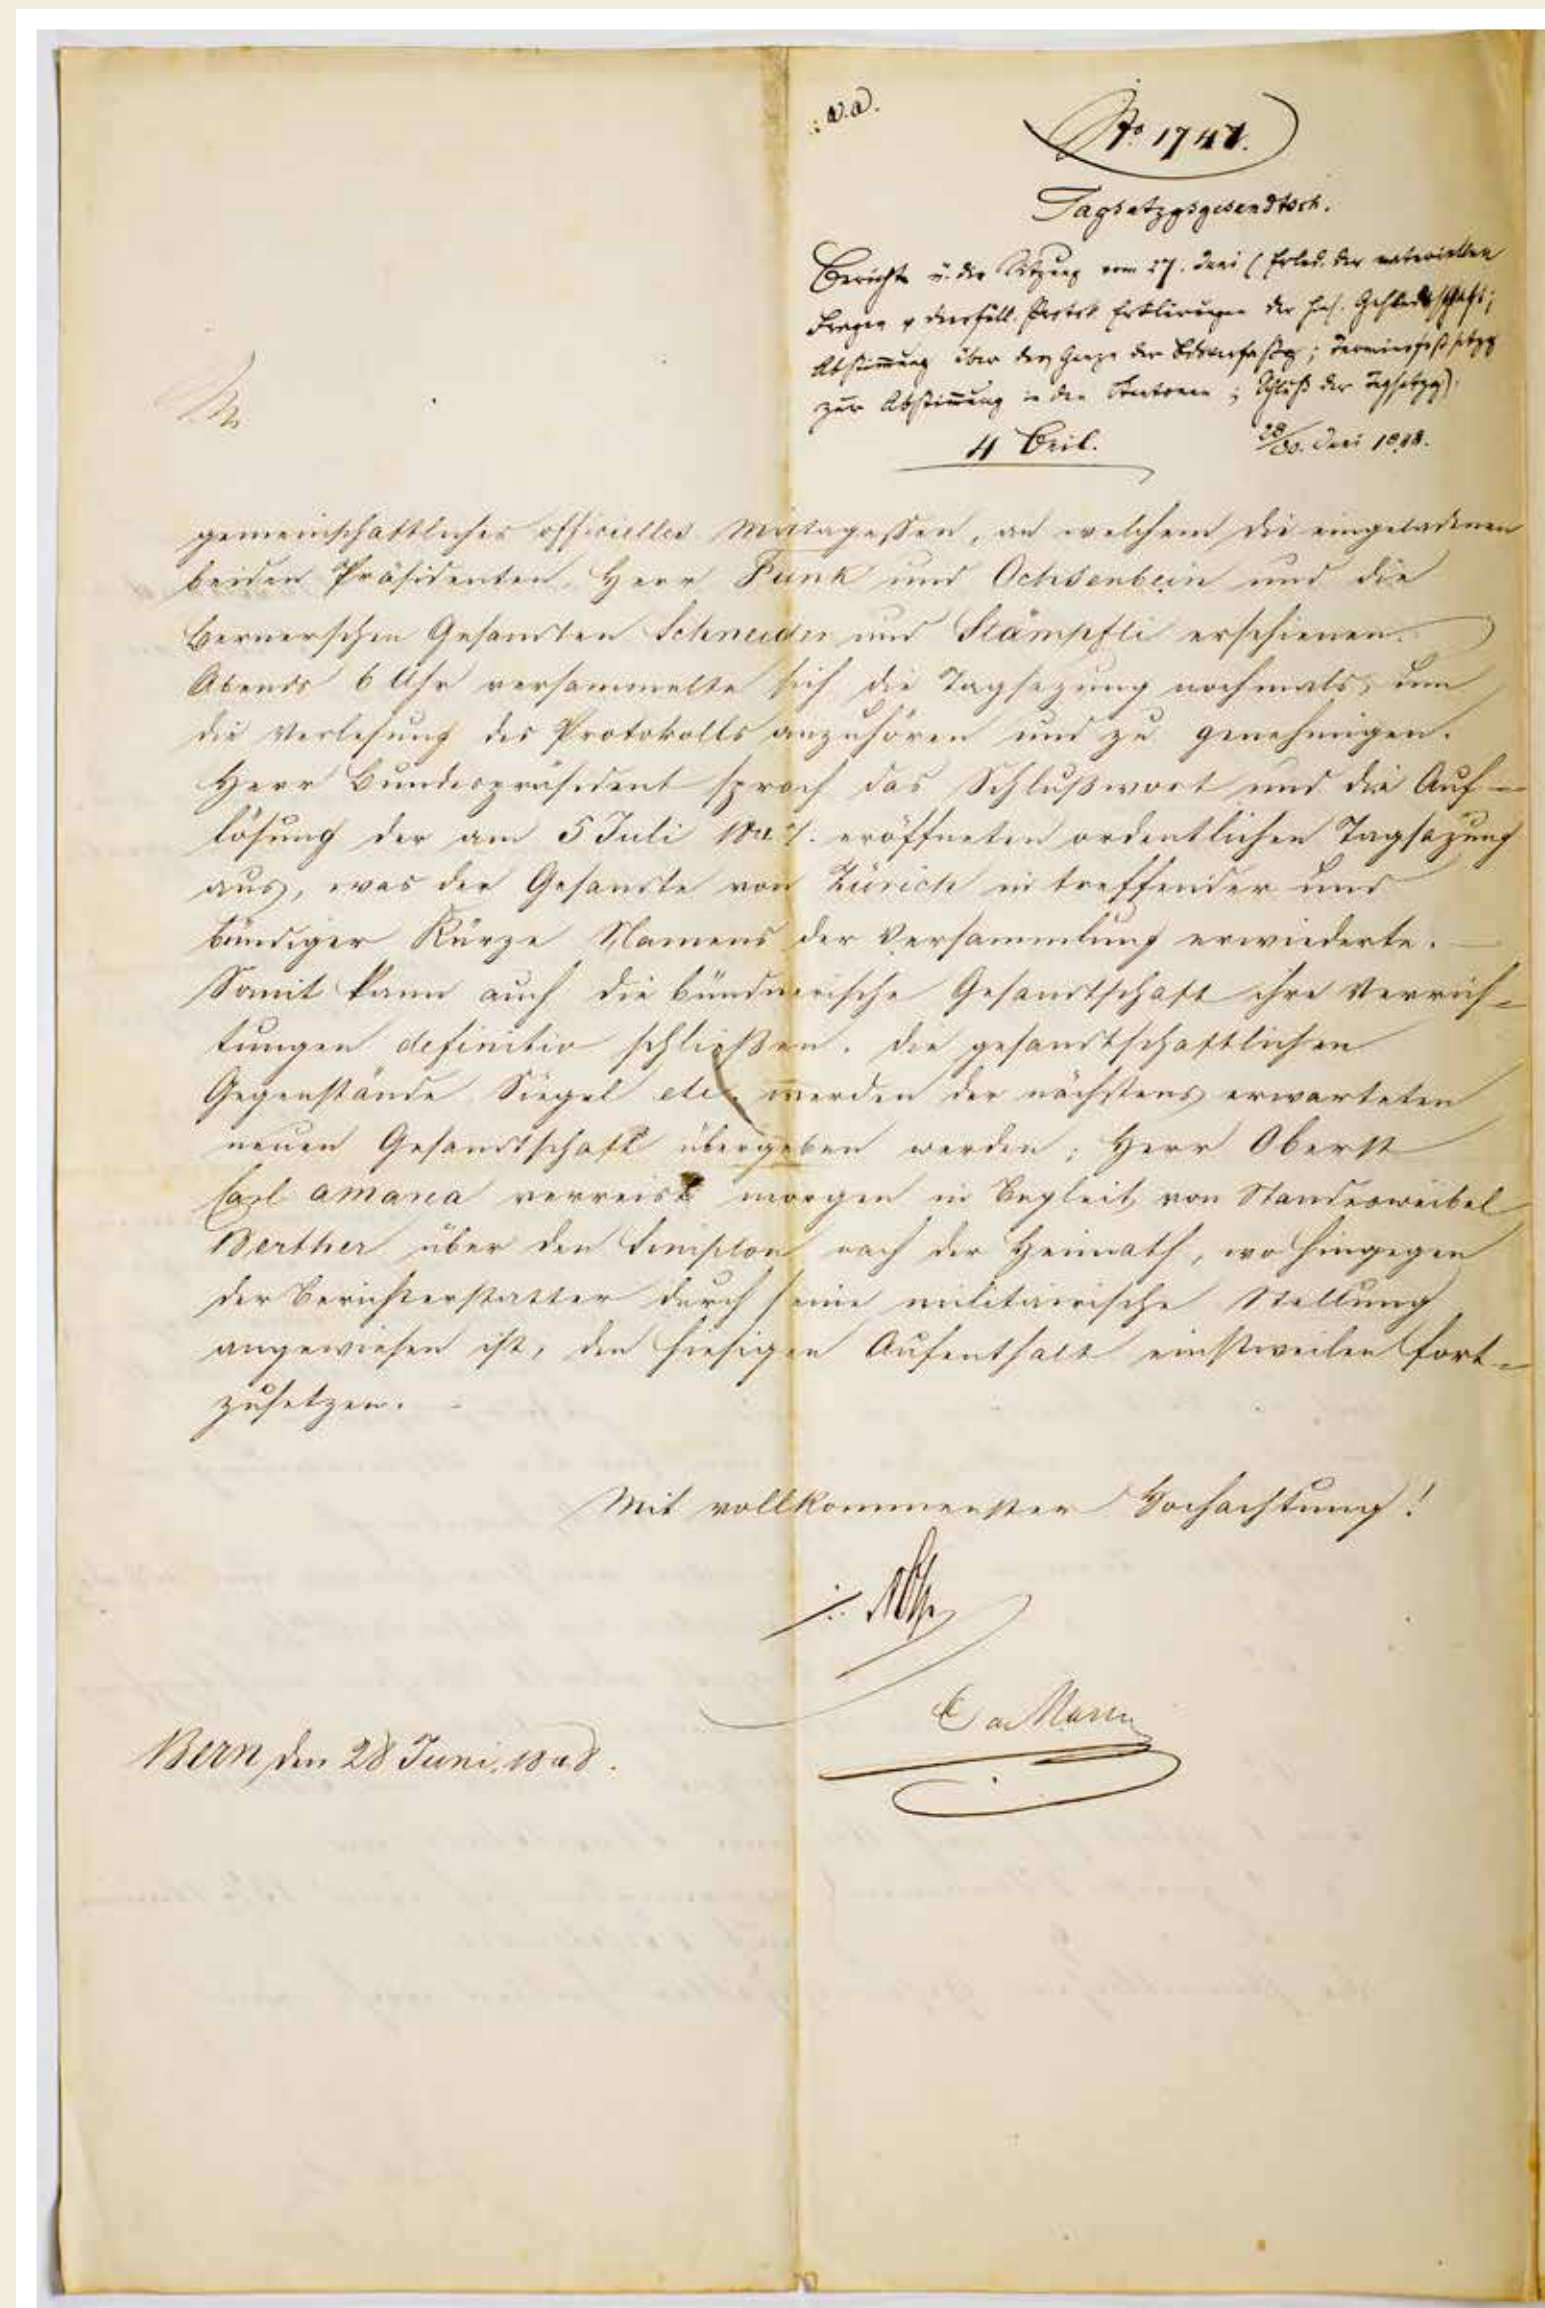 v. a.
No 1747.
Tagsatzgsgesandtsch.
Bericht ü. die Sitzung vom 27. Juni (Erled. der materiellen
Fragen & diesfäll. Protok Erklärungen der hies. Gesandtschaft;
Abstimmung über das Ganze der Bdsverfassg; Terminsfestsetzg
zur Abstimmung in den Kantonen; Schluß der Tagsatzg).
4 Beil.
28/30. Juni 1848.
gemeinschaftliches officielles Mittagessen, an welchem die eingeladenen
beiden Präsidenten, Herr Funk und Ochsenbein und die
bernerschen Gesandten Schneider und Stämpfli erschienen.
Abends 6 Uhr versammelte sich die Tagsazung nochmals, um
die Verlesung des Protokolls anzuhören und zu genehmigen.
Herr Bundespräsident sprach das Schlußwort und die Auf-
lösung der am 5 Juli 1847. eröffneten ordentlichen Tagsazung
aus, was der Gesandte von Zürich in treffender und
bündiger Kürze Namens der Versammlung erwiederte. —
Somit kann auch die bündnerische Gesandtschaft ihre Verrich-
tungen definitiv schließen. Die gesandtschaftlichen
Gegenstände Siegel etc. werden der nächstens erwarteten
neuen Gesandtschaft übergeben werden; Herr Oberst
Carl a Marca verreist morgen in Begleit von Standesweibel
Berther über den Simplon nach der Heimath, wo hingegen
der Berichterstatter durch seine militairische Stellung
angewiesen ist, den hiesigen Aufenthalt einstweilen fort-
zusetzen. —
Mit vollkommenster Hochachtung!
C a Marca
Bern den 28 Juni. 1848.